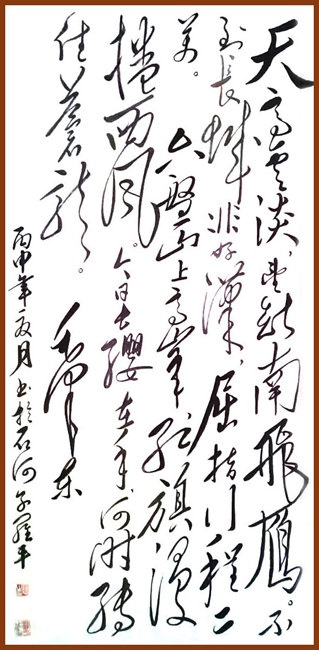 天高云淡，望断南飛雁。不
到長城非好漢，屈指行程二
萬。六盤山上高峰，红旗漫
捲西風。今日长缨在手，何时缚
住蒼龍。毛泽东
丙申年夏月书於石河子羅平